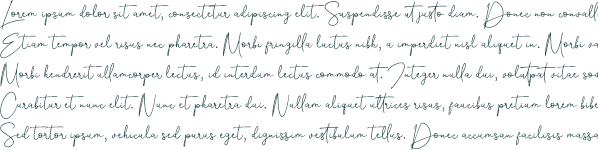 Lorem ipsum dolor sit amet, consectetur adipiscing elit. Suspendisse ut justo diam. Donec non convall
Etiam tempor vel risus nec pharetra. Morbi fringilla luctus nibh, a imperdiet nisl aliquet in. Morbi va
Morbi hendrerit ullamcorper lectus, id interdum lectus commodo at. Integer nulla dui, volutpat vitae sod
Curabitur et nunc elit. Nunc et pharetra dui. Nullam aliquet ultrices risus, faucibus pretium lorem bibe
Sed tortor ipsum, vehicula sed purus eget, dignissim vestibulum tellus. Donec accumsan facilisis massa